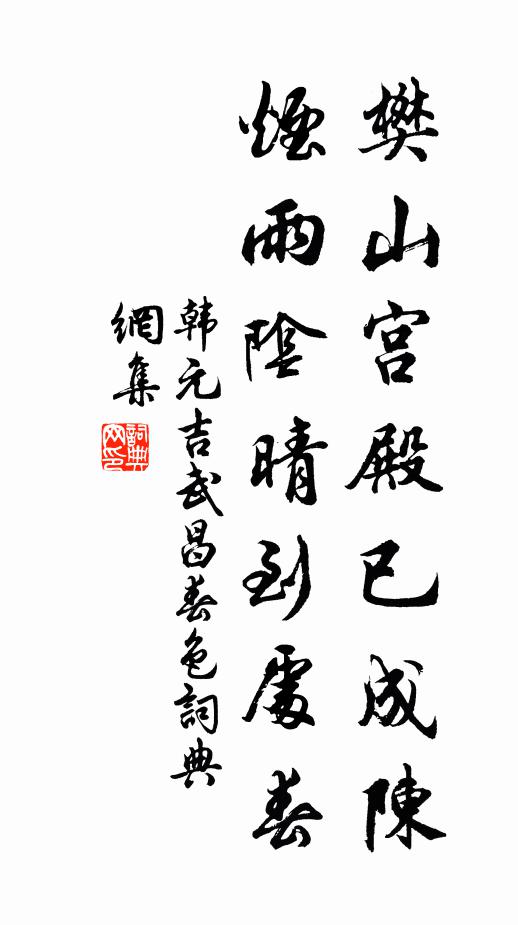 樊山宫殿已成陳
煙雨陰晴到處春
韩元吉武昌春色詞典
網集
詞典
网印